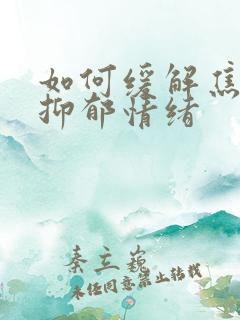 如何缓解焦
抑郁情绪
秦立巍
未经同意禁止转载